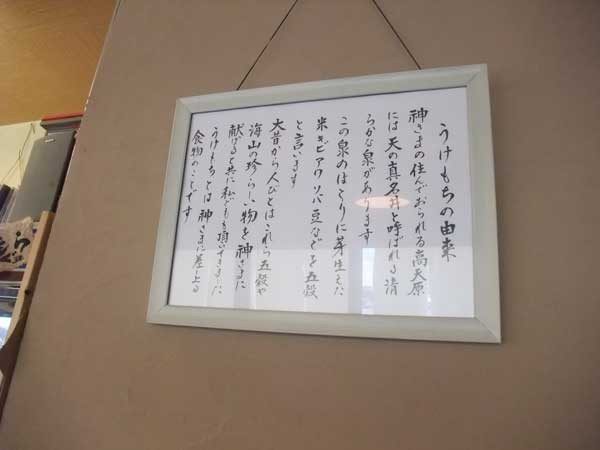 うけもちの由来
神さまの住んでおられる高天原
には天の真名井と呼ばれる清
らかな泉があります
この泉のほとりに芽生えた
米 キビ アワ ソバ 豆などを五穀
と言います
大昔から人びとはこれら五穀や
海山の珍らしい物を神さまに
献げると共に私どもも頂いてきました
うけもちとは神さまに差し上る
食物のことです